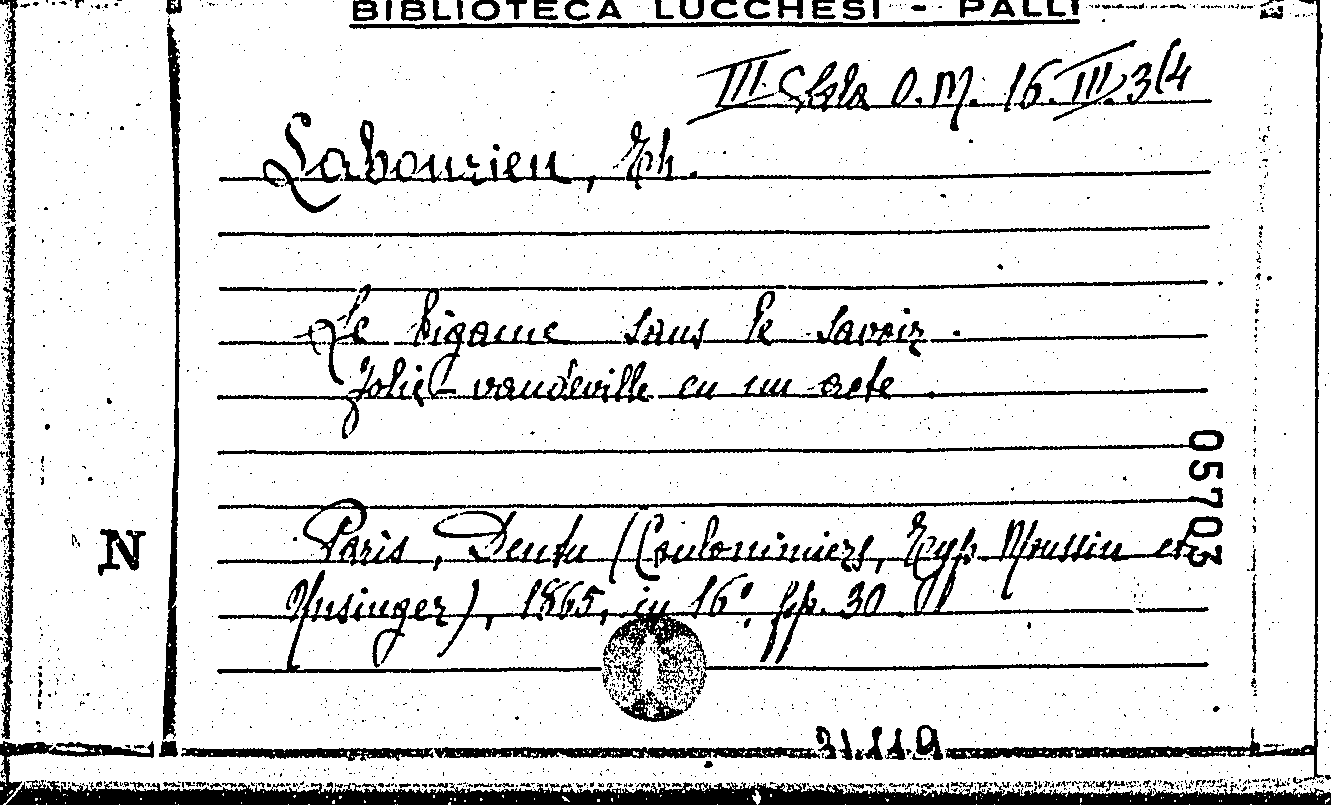 BIBLIOTECA LUCCHESI - PALLI
III. Sala O. M. 16. III. 3(4
Labourieu, Th.
Le bigame sans le savoir.
folie-vaudeville en un acte.
05703
Paris, Dentu (Coulommiers, Typ. Moussin et
N
Unsinger), 1865, in 16°. pp. 30
31.119